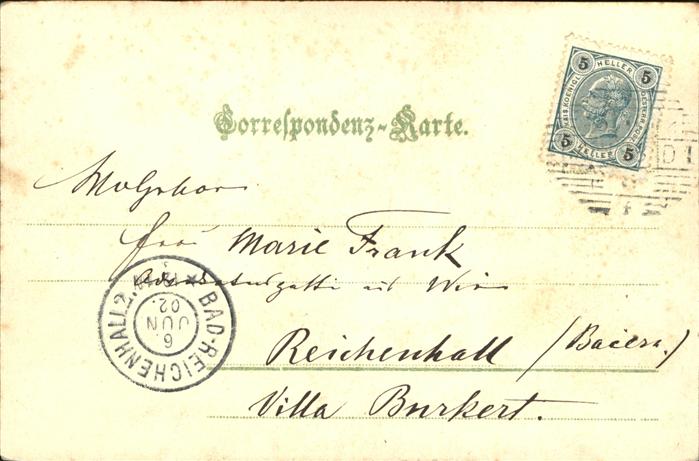 Correspondenz-Karte.
5 HELLER 5
KAIS. KOENIGL. OESTERR. POST
5 HELLER 5
Frau Marie Frank
aus Wien
Reichenhall (Baiern.)
Villa Burkert.
BAD-REICHENHALL 2.
6
JUN
02.